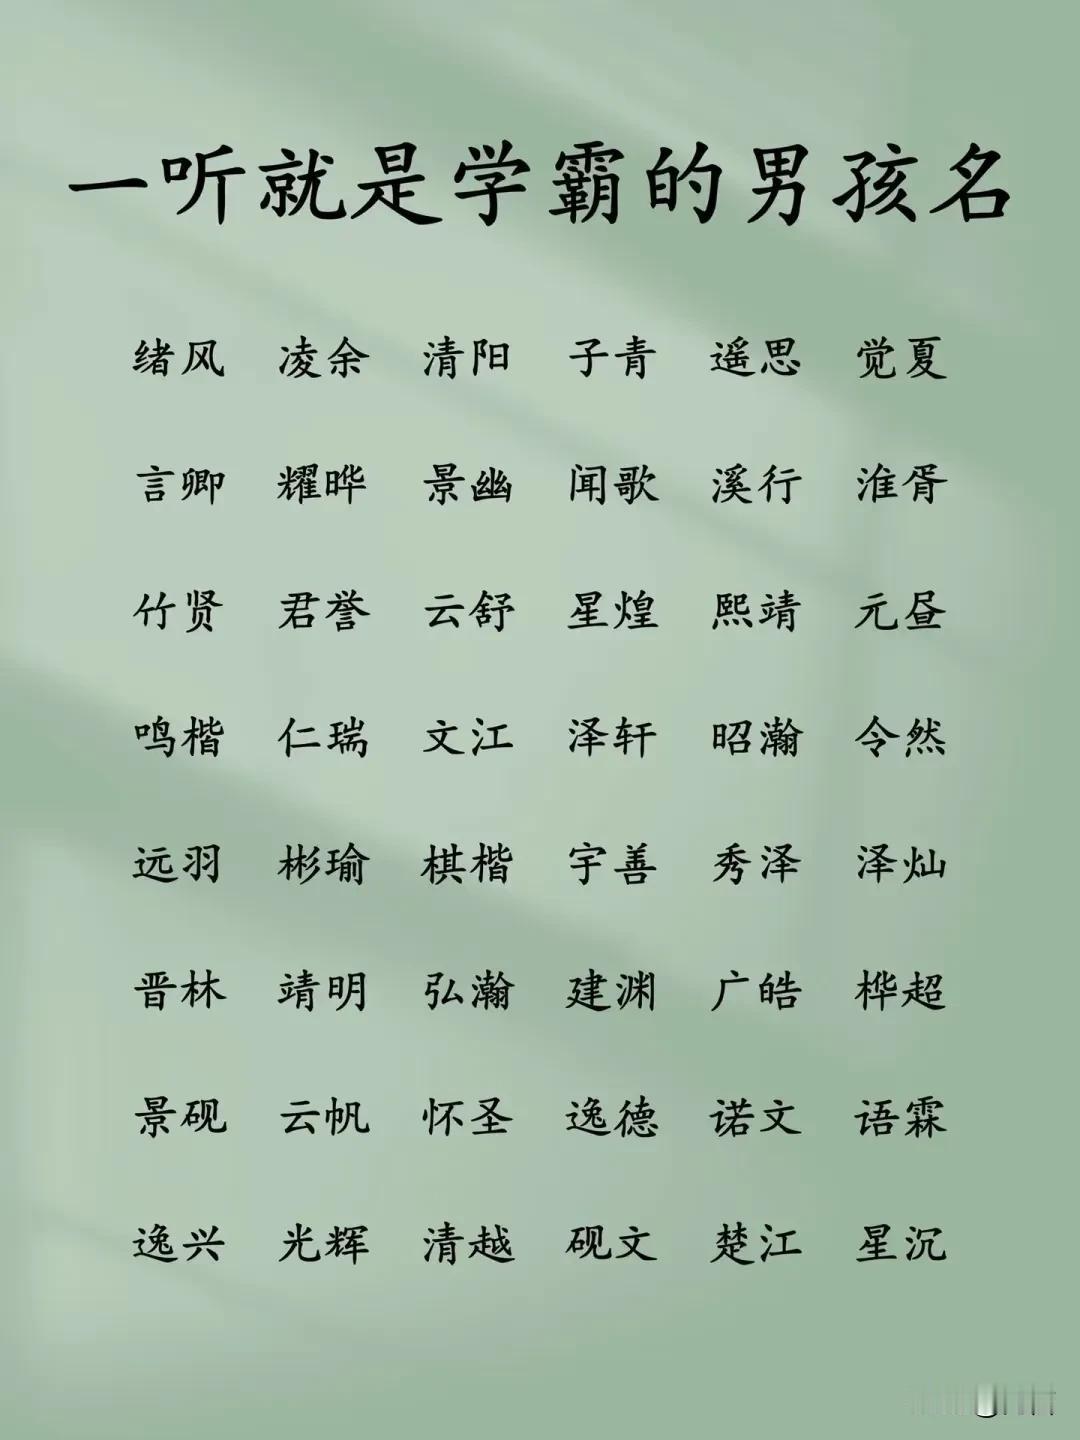 一听就是学霸的男孩名
绪风 凌余 清阳 子青 遥思 觉夏
言卿 耀晔 景幽 闻歌 溪行 淮胥
竹贤 君誉 云舒 星煌 熙靖 元昼
鸣楷 仁瑞 文江 泽轩 昭瀚 令然
远羽 彬瑜 棋楷 宇善 秀泽 泽灿
晋林 靖明 弘瀚 建渊 广皓 桦超
景砚 云帆 怀圣 逸德 诺文 语霖
逸兴 光辉 清越 砚文 楚江 星沉